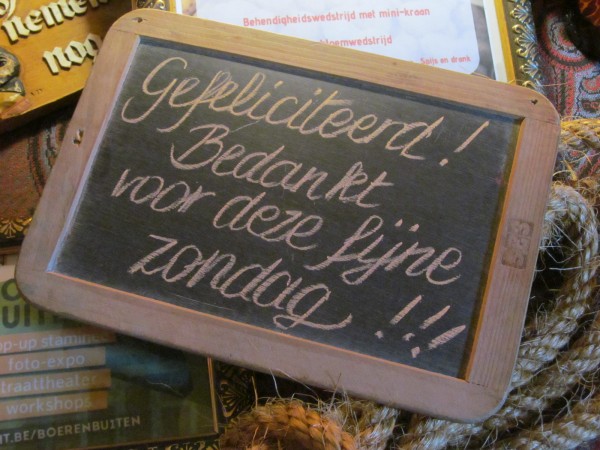 nemen
nog
Behendigheidswedstrijd met mini-kraan
bloemwedstrijd
Spijs en drank
Gefeliciteerd!
Bedankt
voor deze fijne
zondag!!!
op-up
foto-expo
traattheater
workshops
IT.BE/BOERENBUITEN